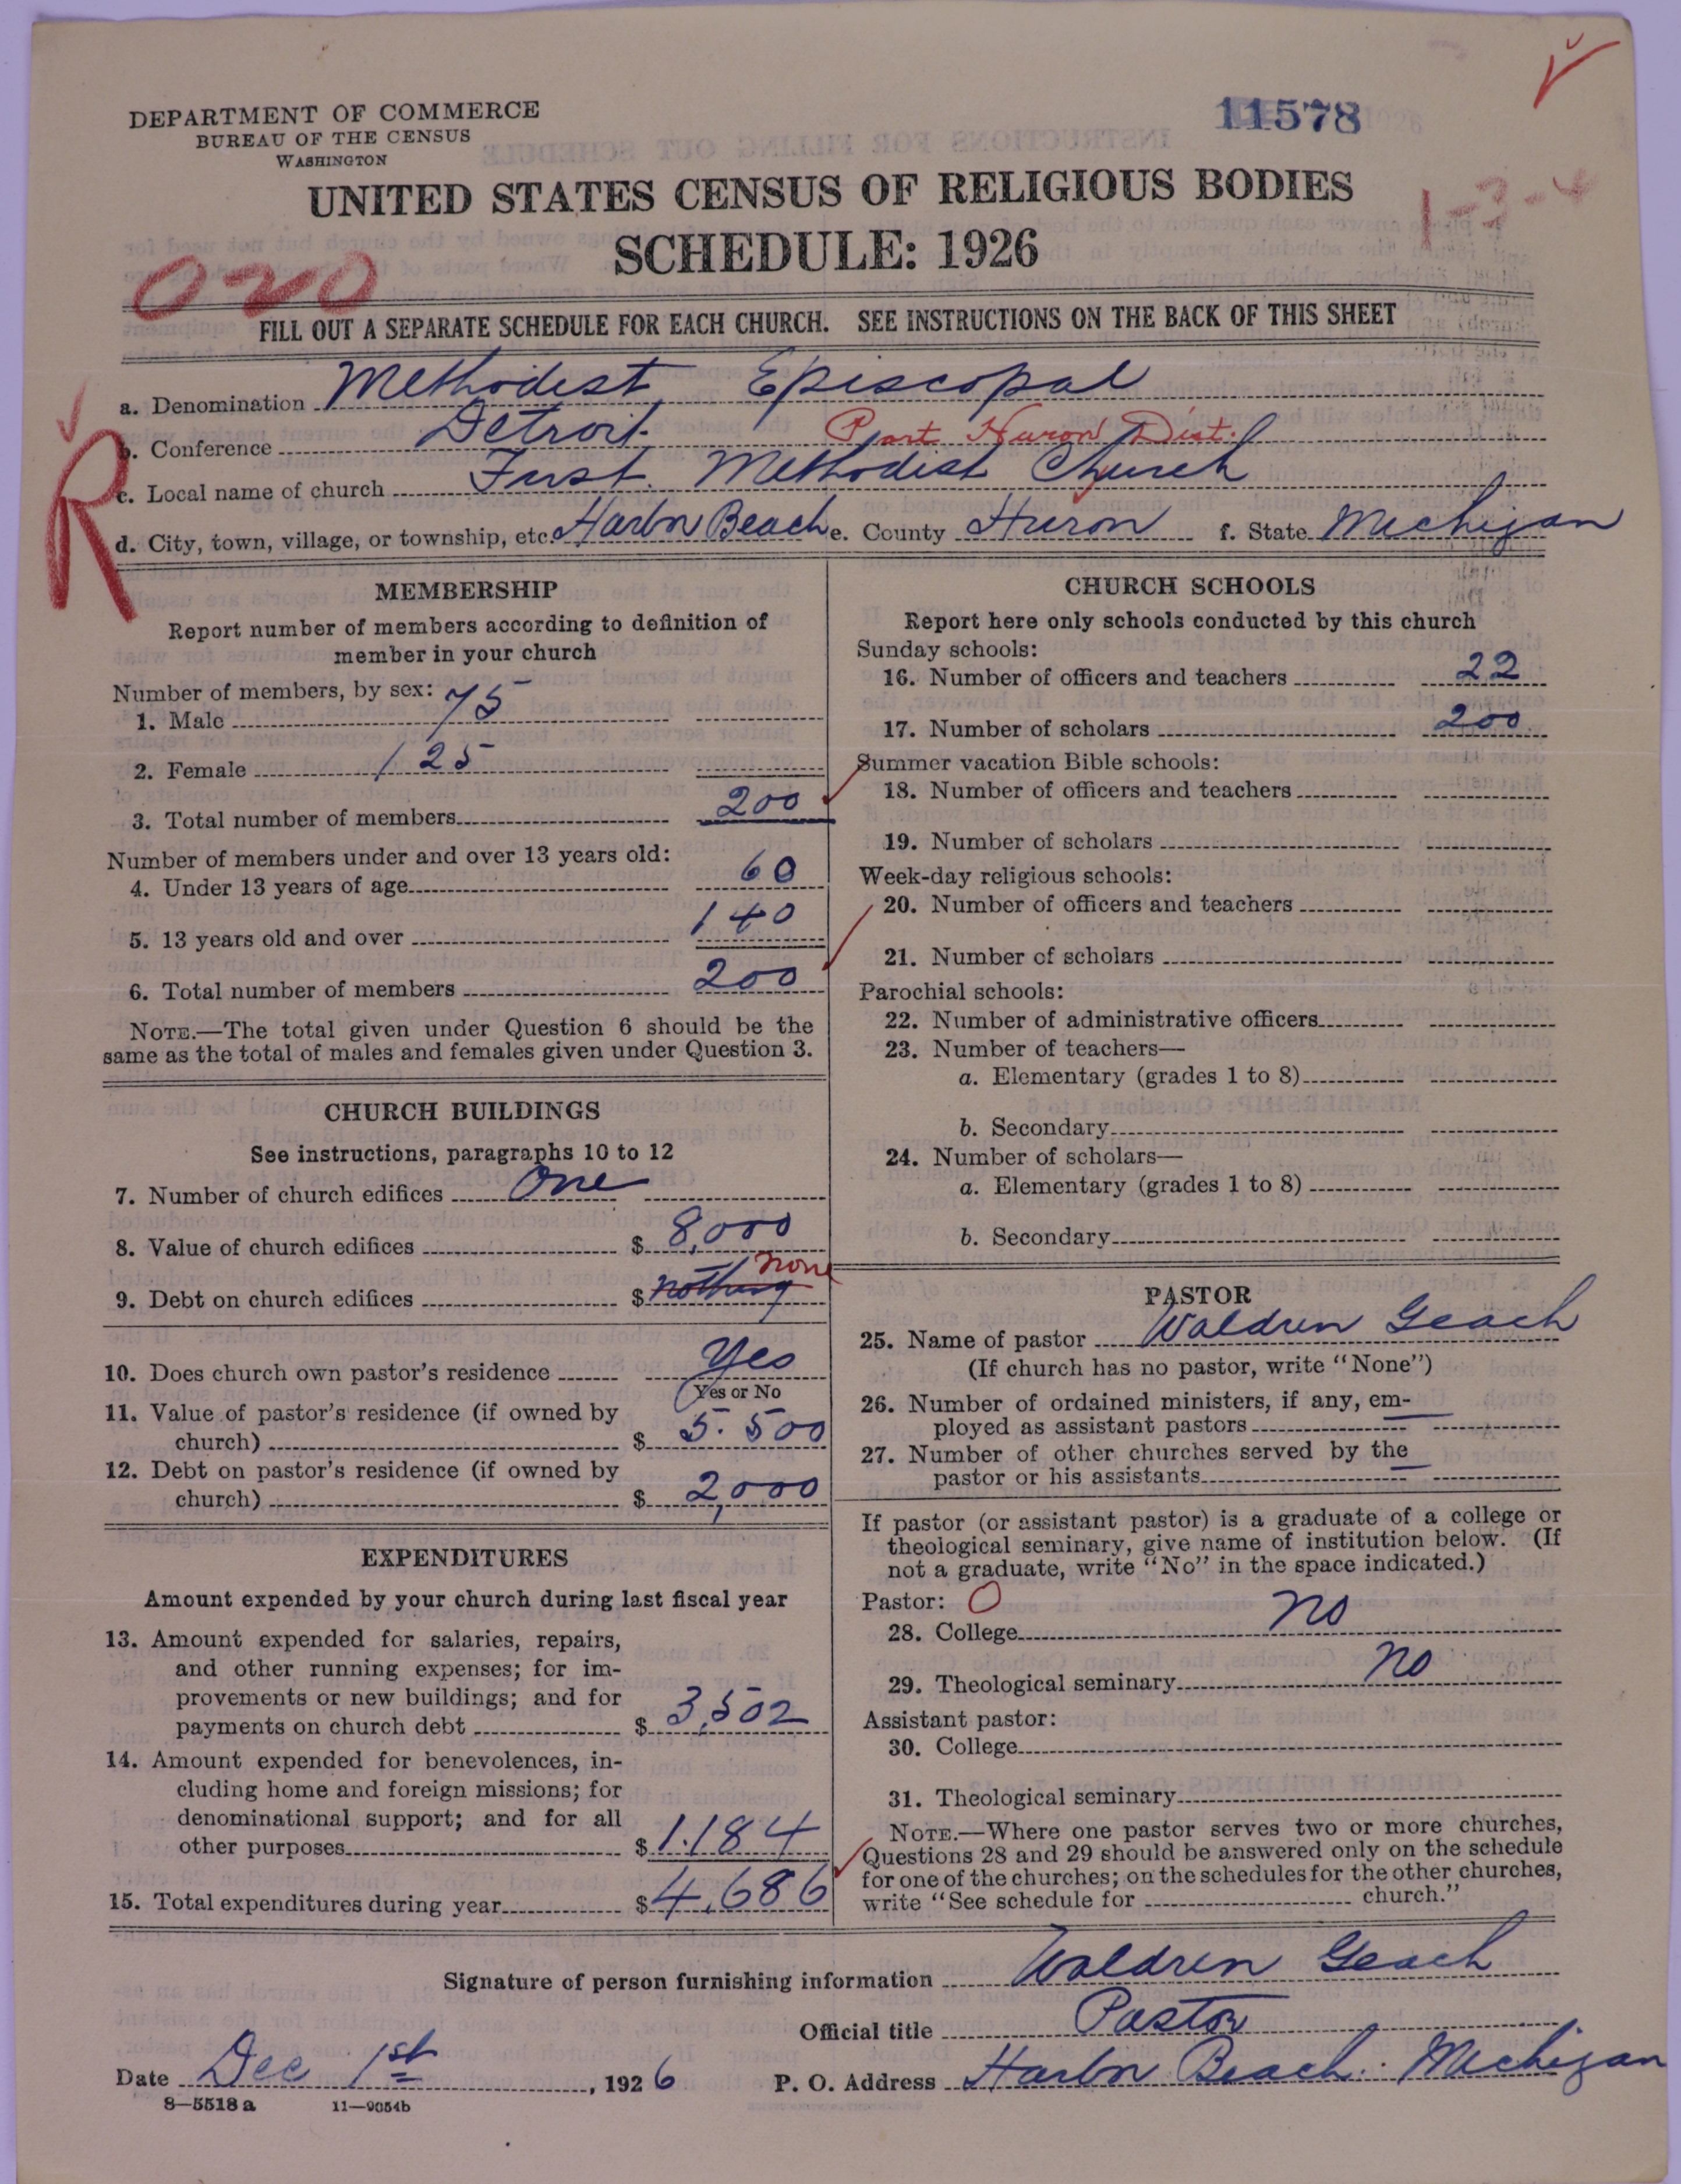 11578
DEPARTMENT OF COMMERCE
BUREAU OF THE CENSUS
WASHINGTON
UNITED STATES CENSUS OF RELIGIOUS BODIES
1-3-4
SCHEDULE: 1926
020
FILL OUT A SEPARATE SCHEDULE FOR EACH CHURCH. SEE INSTRUCTIONS ON THE BACK OF THIS SHEET
R
a. Denomination Methodist Episcopal
b. Conference Detroit. Port Huron Dist.
c. Local name of church First. Methodist Church
d. City, town, village, or township, etc. Harbor Beach e. County Huron f. State Michigan
MEMBERSHIP
Report number of members according to definition of
member in your church
Number of members, by sex:
1. Male 75
2. Female 125
3. Total number of members 200
Number of members under and over 13 years old:
4. Under 13 years of age 60
5. 13 years old and over 140
6. Total number of members 200
NOTE.—The total given under Question 6 should be the
same as the total of males and females given under Question 3.
CHURCH BUILDINGS
See instructions, paragraphs 10 to 12
7. Number of church edifices One
8. Value of church edifices $ 8,000
9. Debt on church edifices $ nothing none
10. Does church own pastor's residence Yes
Yes or No
11. Value of pastor's residence (if owned by
church) $ 5.500
12. Debt on pastor's residence (if owned by
church) $ 2,000
EXPENDITURES
Amount expended by your church during last fiscal year
13. Amount expended for salaries, repairs,
and other running expenses; for im-
provements or new buildings; and for
payments on church debt $ 3,502
14. Amount expended for benevolences, in-
cluding home and foreign missions; for
denominational support; and for all
other purposes $ 1.184
15. Total expenditures during year $ 4,686
CHURCH SCHOOLS
Report here only schools conducted by this church
Sunday schools:
16. Number of officers and teachers 22
17. Number of scholars 200
Summer vacation Bible schools:
18. Number of officers and teachers
19. Number of scholars
Week-day religious schools:
20. Number of officers and teachers
21. Number of scholars
Parochial schools:
22. Number of administrative officers
23. Number of teachers—
a. Elementary (grades 1 to 8)
b. Secondary
24. Number of scholars—
a. Elementary (grades 1 to 8)
b. Secondary
PASTOR
25. Name of pastor Waldren Geach
(If church has no pastor, write "None")
26. Number of ordained ministers, if any, em-
ployed as assistant pastors —
27. Number of other churches served by the
pastor or his assistants —
If pastor (or assistant pastor) is a graduate of a college or
theological seminary, give name of institution below. (If
not a graduate, write "No" in the space indicated.)
Pastor: O
28. College no
29. Theological seminary no
Assistant pastor:
30. College
31. Theological seminary
NOTE.—Where one pastor serves two or more churches,
Questions 28 and 29 should be answered only on the schedule
for one of the churches; on the schedules for the other churches,
write "See schedule for church."
Signature of person furnishing information Waldren Geach
Official title Pastor
Date Dec 1st, 1926 P. O. Address Harbor Beach. Michigan
8—5518 a 11—9054b